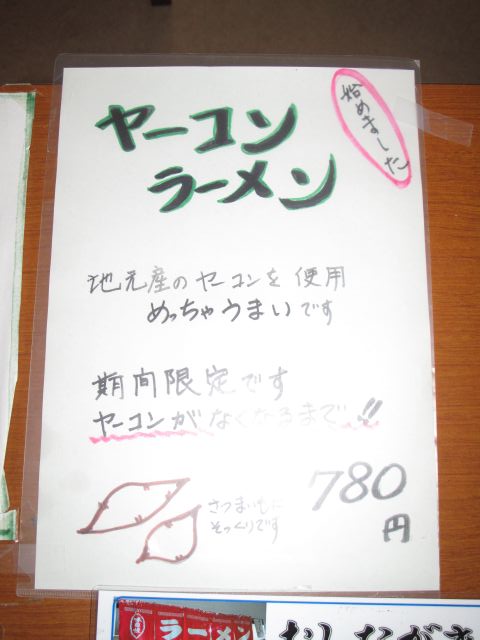 始めました
ヤーコン
ラーメン
地元産のヤーコンを使用
めっちゃうまいです
期間限定です
ヤーコンがなくなるまで!!
さつまいもに
そっくりです
780
円
ラーメン
おしながき